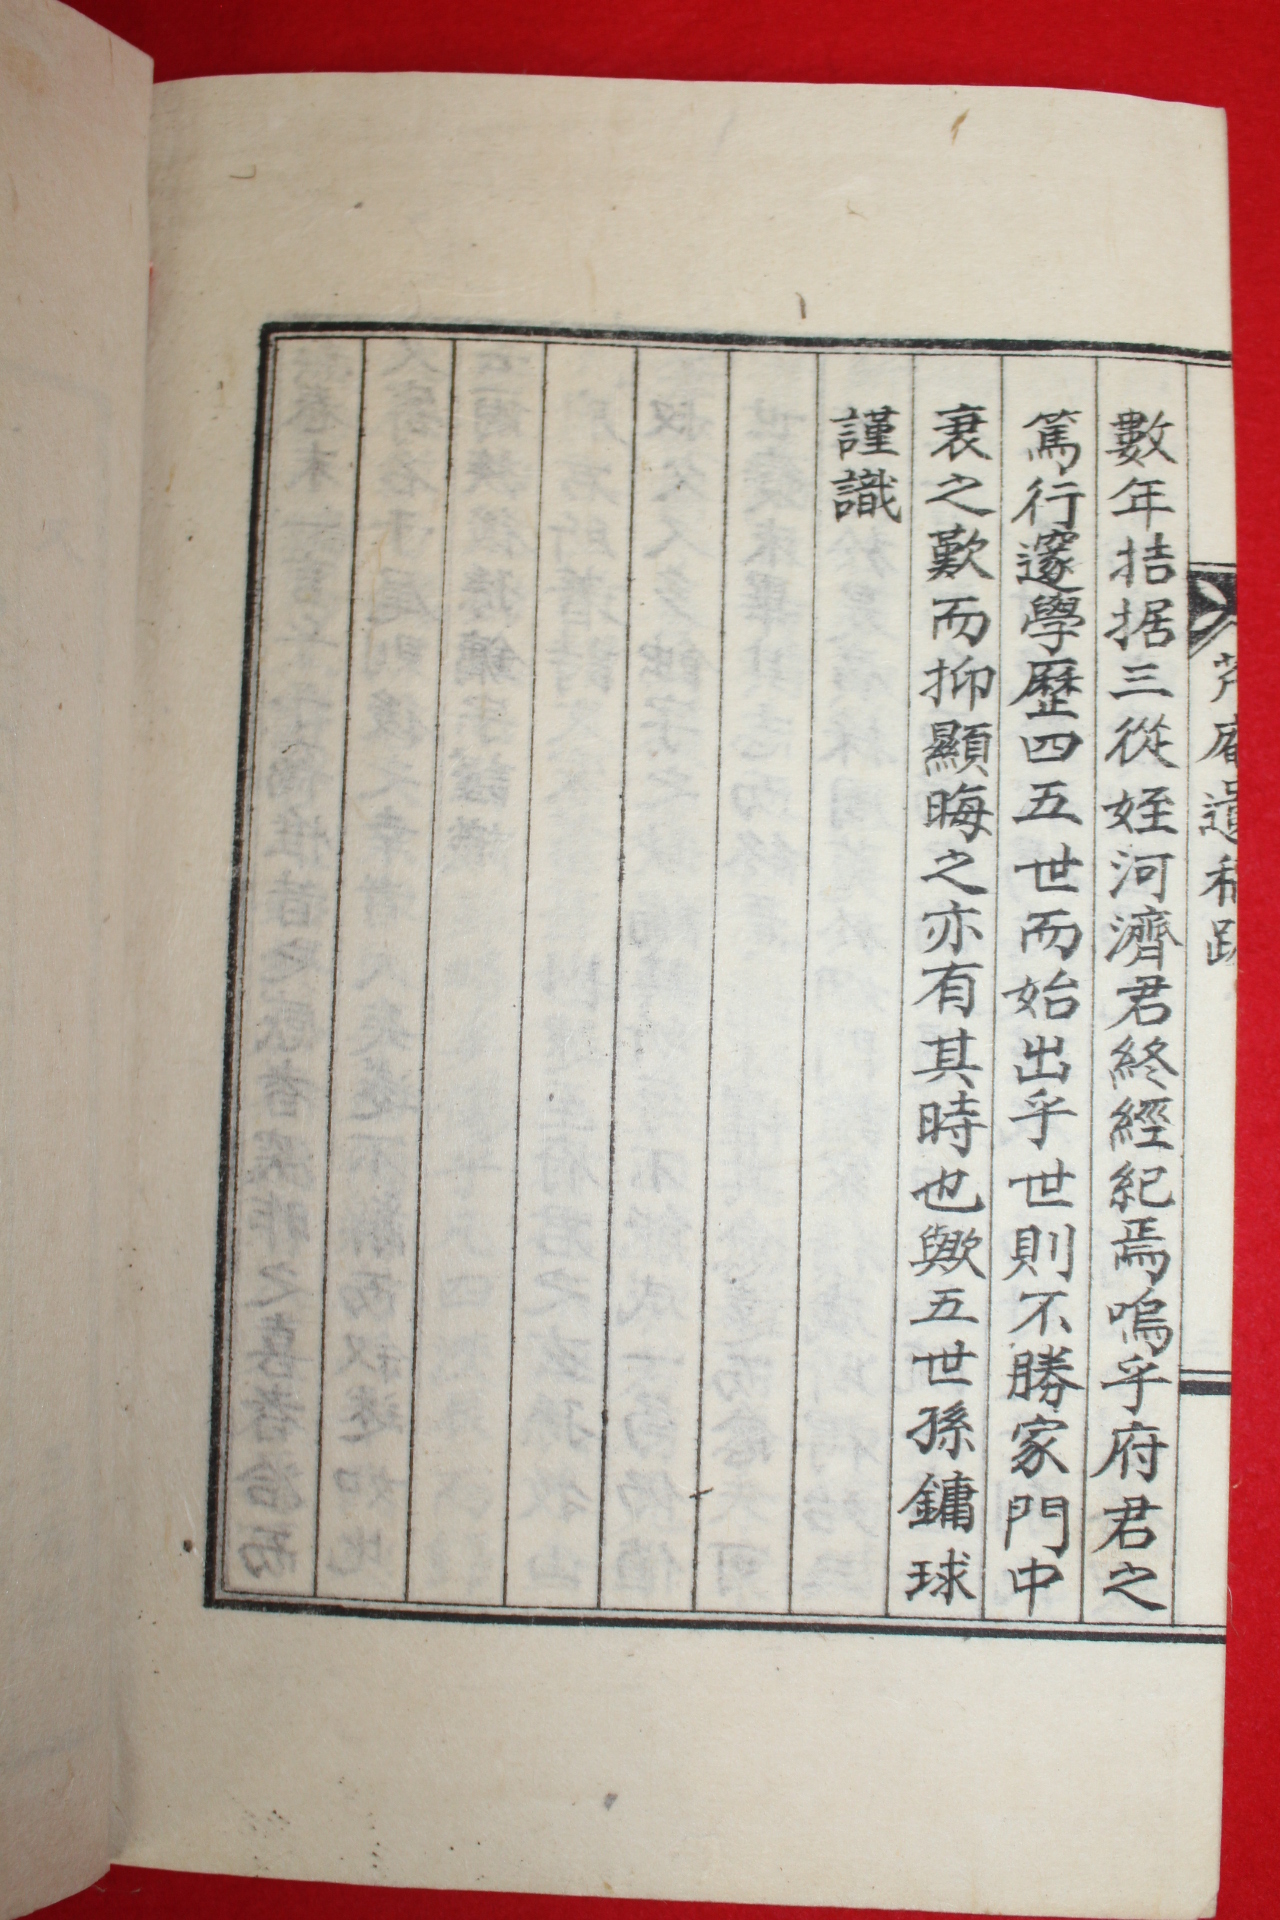 芦庵遺稿跋
數年拮据三從姪河濟君終經紀焉嗚乎府君之
篤行邃學歷四五世而始出乎世則不勝家門中
衰之歎而抑顯晦之亦有其時也歟五世孫鏞球
謹識